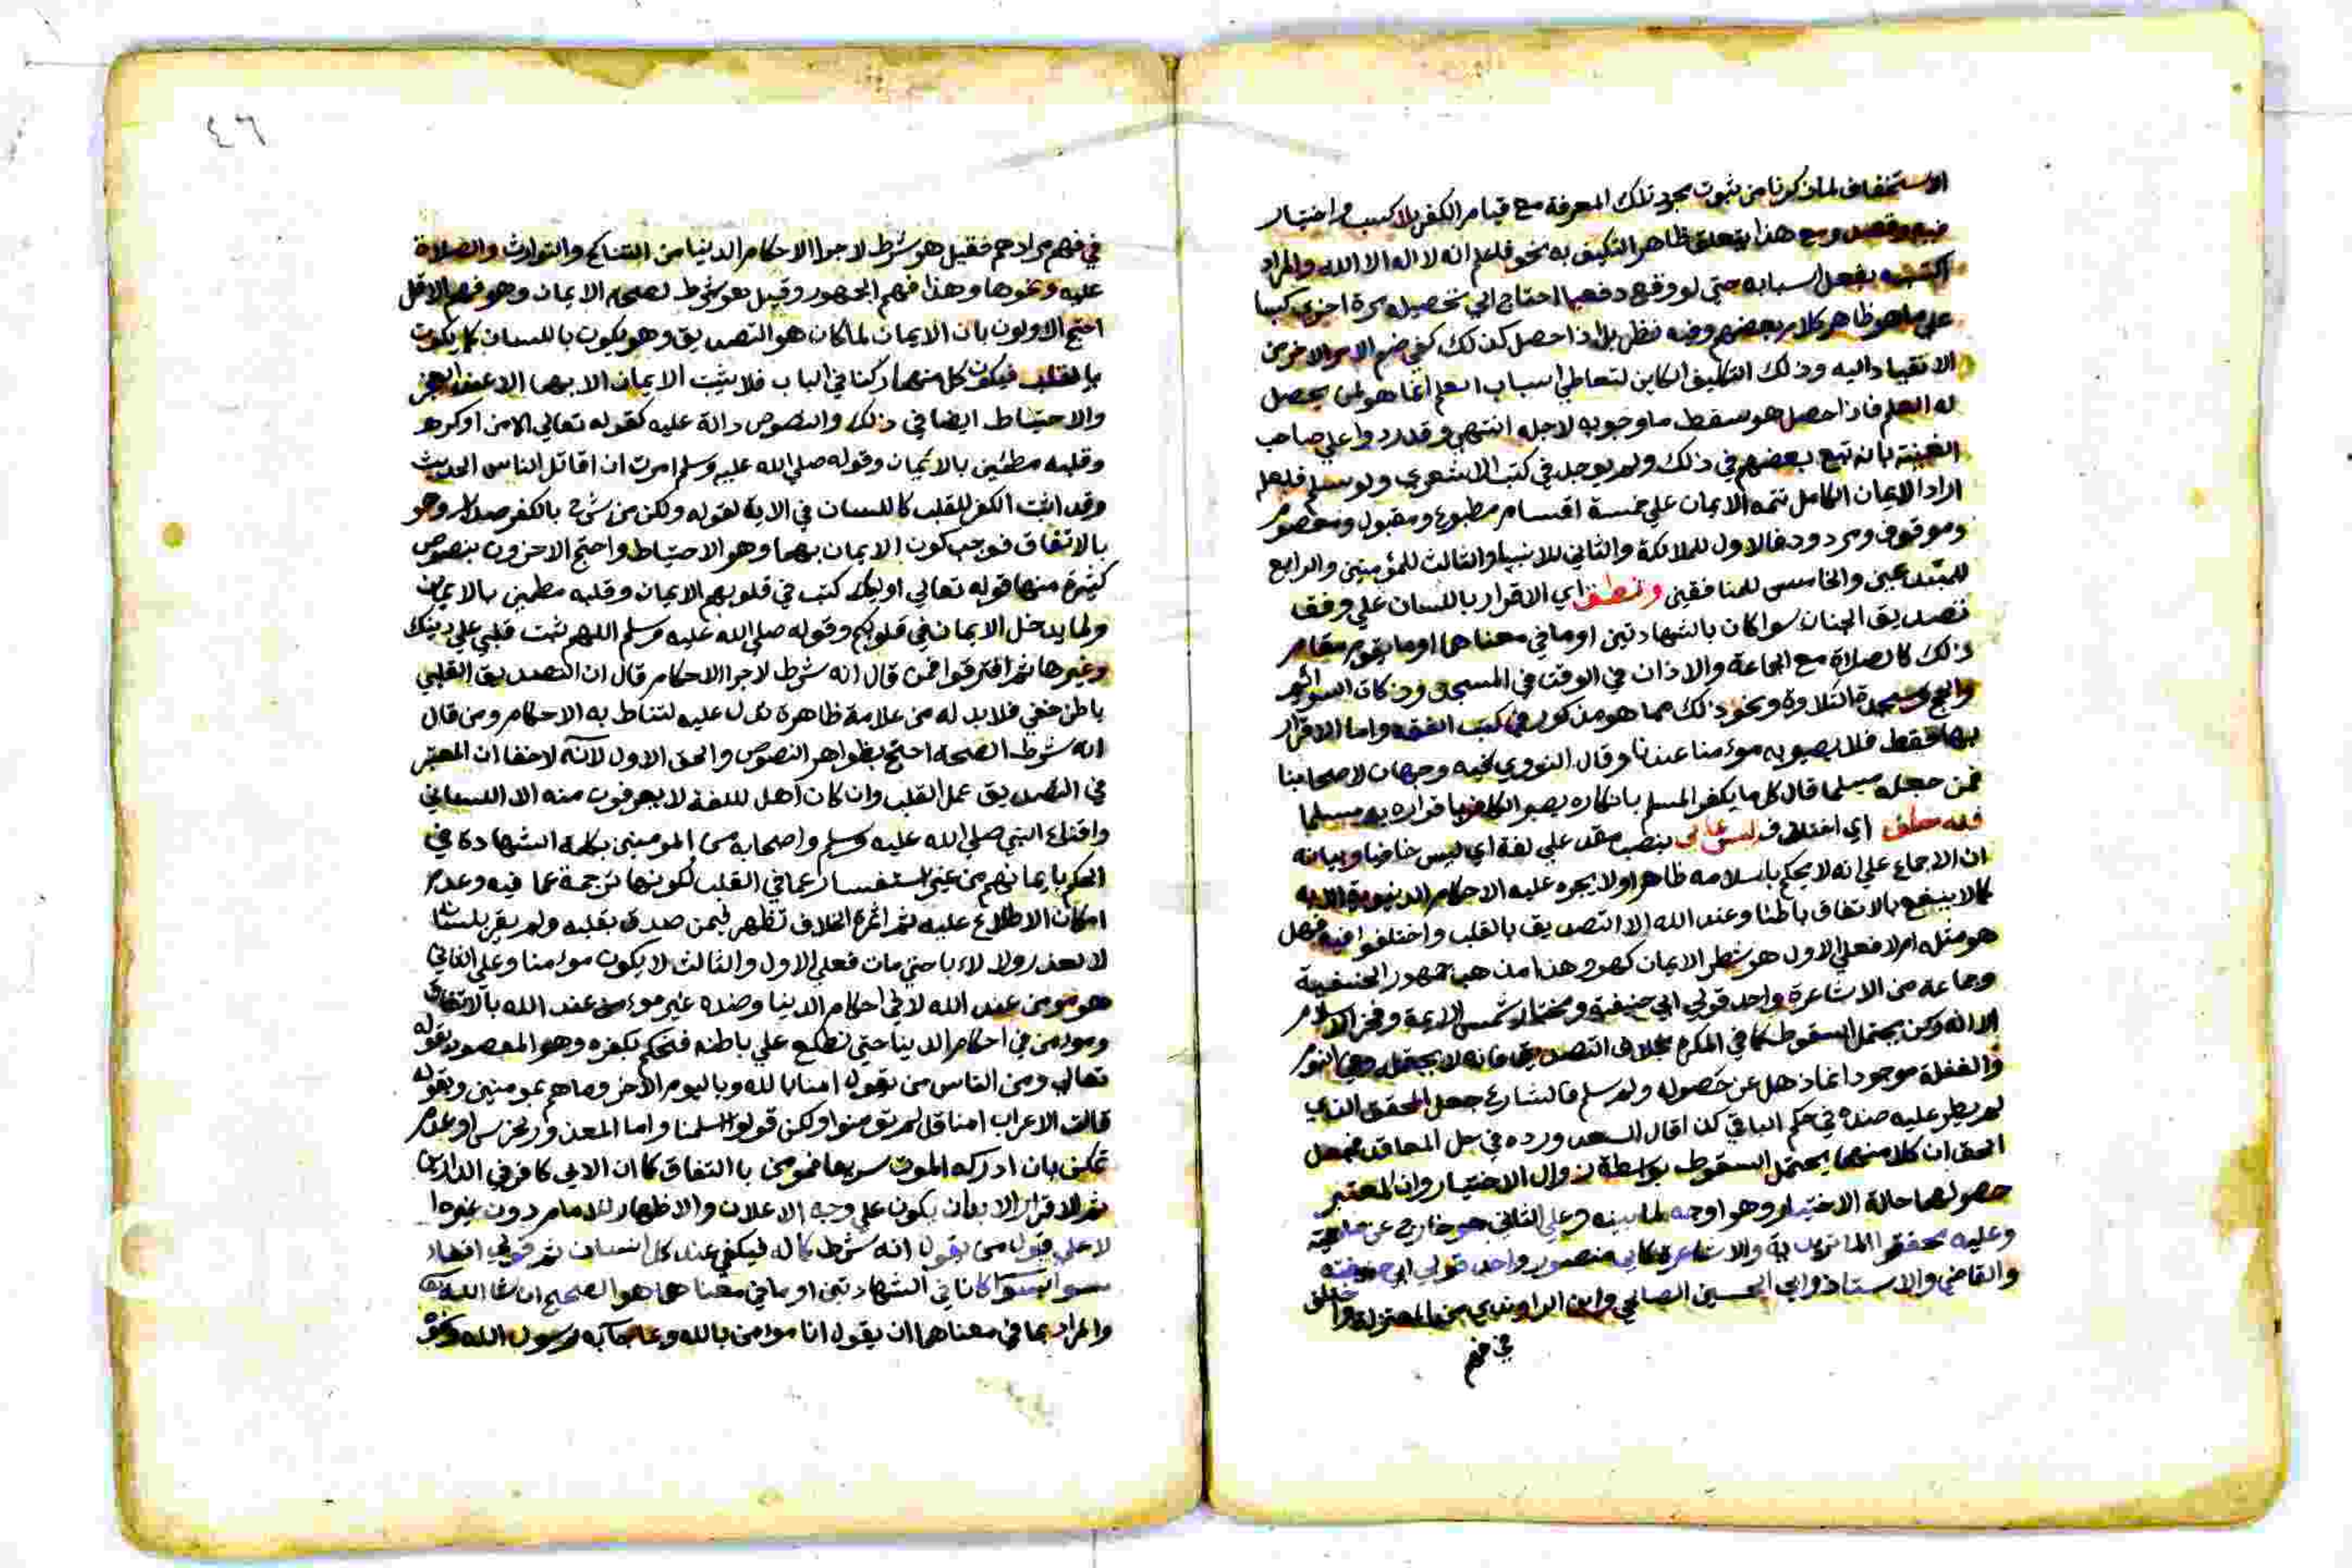 الاستخفاف لما ذكرنا من ثبوت مجرد تلك المعرفة مع قيام الكفر بلا كسب واختيار
فيه وقصد ومع هذا يتعلق ظاهر التكليف به نحو فاعلم انه لا اله الا الله والمراد
اكتسبه بفعل اسبابه حتى لو وقع دفعيا احتاج الي تحصيله مرة اخري كسبا
علي ما هو ظاهر كلام بعضهم وفيه نظر بل اذا حصل كذلك كفي ضم الامر الاخر من
الانقياد اليه وذلك التكليف الكاين لتعاطي اسباب العلم انما هو لمن يحصل
له العلم فاذا حصل هو سقط ما وجوبه لاجله انتهي وقد ردوا علي صاحب
الغنية بانه تبع بعضهم في ذلك ولم يوجد في كتب الاشعري ولو سلم فلعله
اراد الايمان الكامل تتمه الايمان علي خمسة اقسام مطبوع ومقبول ومعصوم
وموقوف ومردود فالاول للملائكة والثاني للانبيا والثالث للمؤمنين والرابع
للمبتدعين والخامس للمنافقين ونطق اي الاقرار باللسان علي وفق
تصديق الجنان سوا كان بالشهادتين او ما في معناهما او ما يقوم مقام
ذلك كالصلاة مع الجماعة والاذان في الوقت في المسجد وزكاة السوائم
والحج وسجدة التلاوة ونحو ذلك مما هو مذكور في كتب الفقه واما الاقرار
بها فقط فلا يصير به مؤمنا عندنا وقال النووي فيه وجهان لاصحابنا
فمن جعله مسلما قال كل ما يكفر المسلم بانكاره يصير الكافر باقراره به مسلما
فيه خلف اي اختلاف ليس بنصب علي لغة اي ليس خافيا وبيانه
ان الاجماع علي انه لا يحكم باسلامه ظاهرا ولا يجره عليه الاحكام الدنيوية الا به
كما لا ينفع بالاتفاق باطنا وعند الله الا التصديق بالقلب واختلفوا فيه فهل
هو مثله ام لا فعلي الاول هو شطر الايمان كهو وهذا مذهب جمهور الحنفية
وجماعة من الاشاعرة واحد قولي ابي حنيفة ومختار شمس الايمة وفخر الاسلام
الا انه ركن يحتمل السقوط كما في المكره بخلاف التصديق فانه لا يحتمله وهي النوم
والغفلة موجود انما ذهل عن حصوله ولو سلم فالشارع جعل المحقق الذي
لم يطر عليه ضده في حكم الباقي كذا قال السعد ورده في حل المعاقد فجعل
الحق ان كلا منهما يحتمل السقوط بواسطة زوال الاختيار وان المعتبر
حصولهما حالة الاختيار وهو اوجه لما بينه وعلي الثاني هو خارج عن ماهيته
وعليه محققوا الماتريدية والاشاعرة كابي منصور واحد قولي ابي حنيفة
والقاضي والاستاذ وابي الحسين الصالحي وابن الراوندي من المعتزلة
في فهم
٤٦
في فهم مرادهم فقيل هو شرط لاجرا الاحكام الدنيا من التناكح والتوارث والصلاة
عليه ونحوها وهذا فهم الجمهور وقيل هو شرط لصحة الايمان وهو فهم الاقل
احتج الاولون بان الايمان لما كان هو التصديق وهو يكون باللسان كما يكون
بالقلب فيكون كل منهما ركنا في الباب فلا يثبت الايمان الا بهما الا عند العجز
والاحتياط ايضا في ذلك والنصوص دالة عليه كقوله تعالي الا من اكره
وقلبه مطمئن بالايمان وقوله صلي الله عليه وسلم امرت ان اقاتل الناس الحديث
وقد اثبت الكفر للقلب كاللسان في الاية لقوله ولكن من شرح بالكفر صدرا وهو
بالاتفاق فوجب كون الايمان بهما وهو الاحتياط واحتج الاخرون بنصوص
كثيرة منها قوله تعالي اوليك كتب في قلوبهم الايمان وقلبه مطمئن بالايمان
ولما يدخل الايمان في قلوبكم وقوله صلي الله عليه وسلم اللهم ثبت قلبي علي دينك
وغيرها ثم افترقوا فمن قال انه شرط لاجرا الاحكام قال ان التصديق القلبي
باطن خفي فلا بد له من علامة ظاهرة تدل عليه لتناط به الاحكام ومن قال
انه شرط الصحة احتج بظواهر النصوص والحق الاول لانه لا خفا ان المعتبر
في التصديق عمل القلب وان كان اهل اللغة لا يعرفون منه الا اللساني
واقناع النبي صلي الله عليه وسلم واصحابه من المومنين بكلمة الشهادة في
الحكم بايمانهم من غير استفسار عما في القلب لكونها ترجمة عما فيه وعدم
امكان الاطلاع عليه ثم اثمرة الخلاف تظهر فيمن صدق بقلبه ولم يقر بلسانه
لا لعذر ولا لاباء حتي مات فعلي الاول والثالث لا يكون مؤمنا وعلي الثاني
هو مومن عند الله لا في احكام الدنيا وضده غير مومن عند الله بالاتفاق
ومومن في احكام الدنيا حتي نطلع علي باطنه فنحكم بكفره وهو المقصود بقوله
تعالي ومن الناس من يقول امنا بالله وباليوم الاخر وما هم بمومنين وبقوله
قالت الاعراب امنا قل لم تؤمنوا ولكن قولوا اسلمنا واما المعذور بخرس او عدم
تمكن بان ادركه الموت سريعا فمومن بالاتفاق كما ان الابي كافر في الدارين
ثم الاقرار لا بد ان يكون علي وجه الاعلان والاظهار للامام دون غيره
لا علي قول من يقول انه شرط كماله فيكفي عند كل انسان ثم
سوا كانا في الشهادتين او ما في معناهما هو الصحيح ان شا الله
والمراد بما في معناهما ان يقول انا مومن بالله وبما جآ به رسول الله